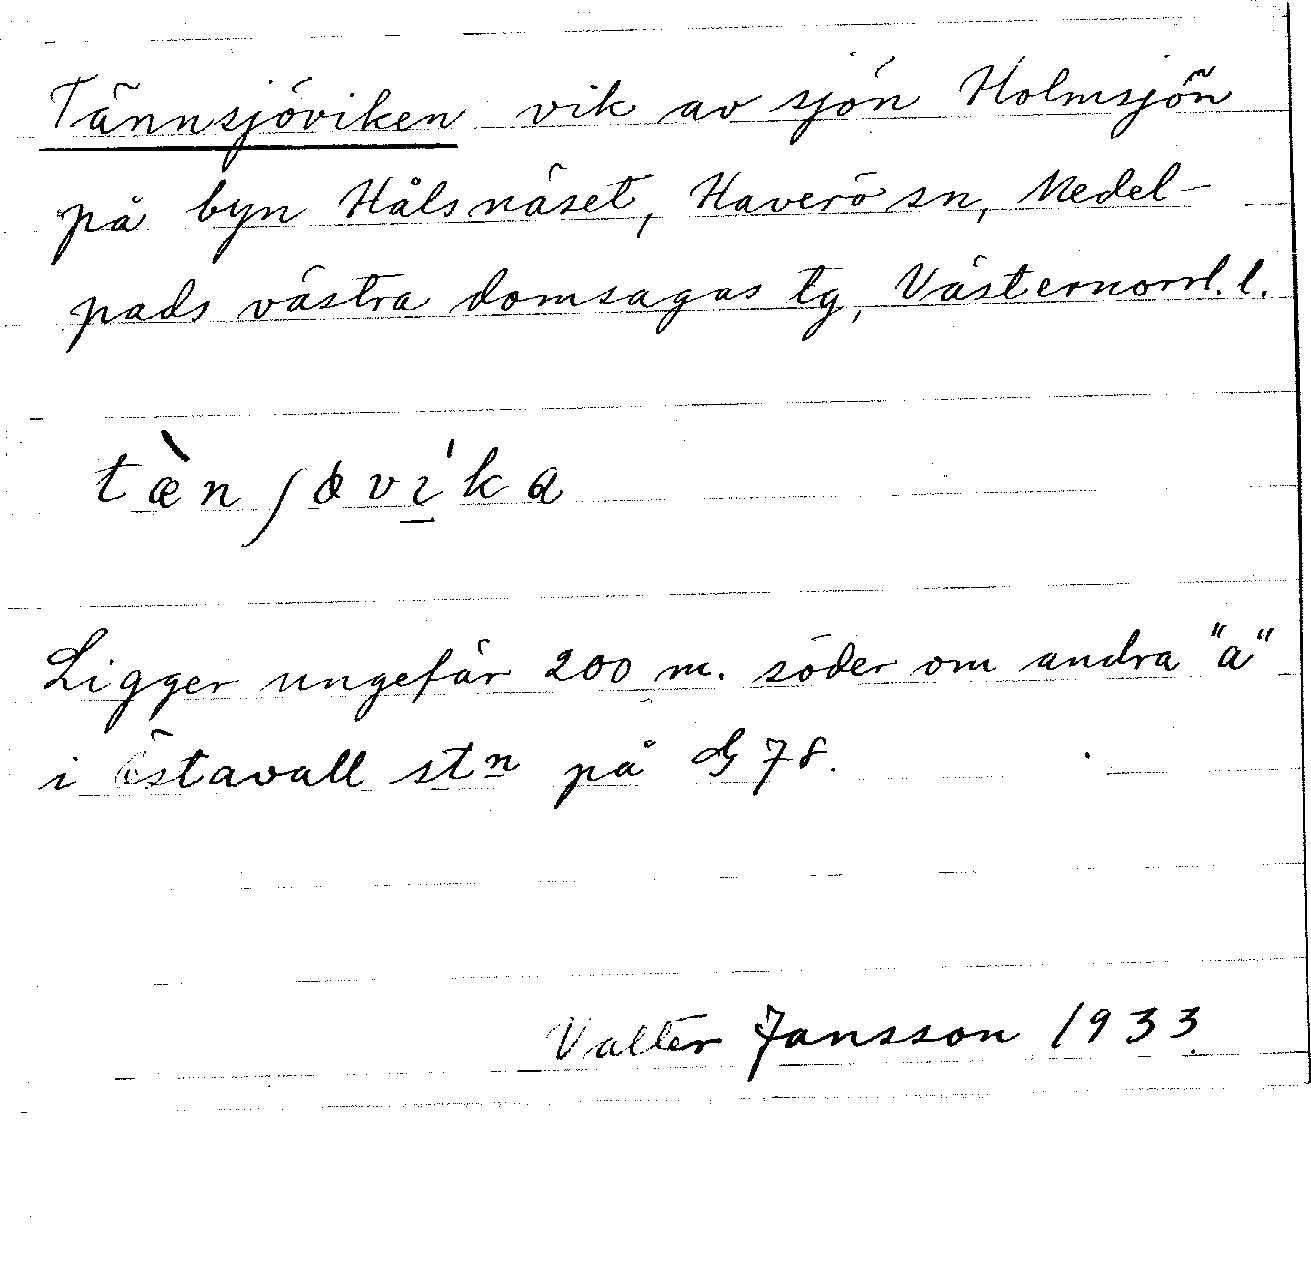 Tännsjöviken vik av sjön Holmsjön
på byn Hålsnäset, Haverö sn, Medel-
pads västra domsagas tg, Västernorrl. l.
tæ̀nʃövi̱ˈka
Ligger ungefär 200 m. söder om andra "a"
i Östavall stn på G 78.
Valter Jansson 1933